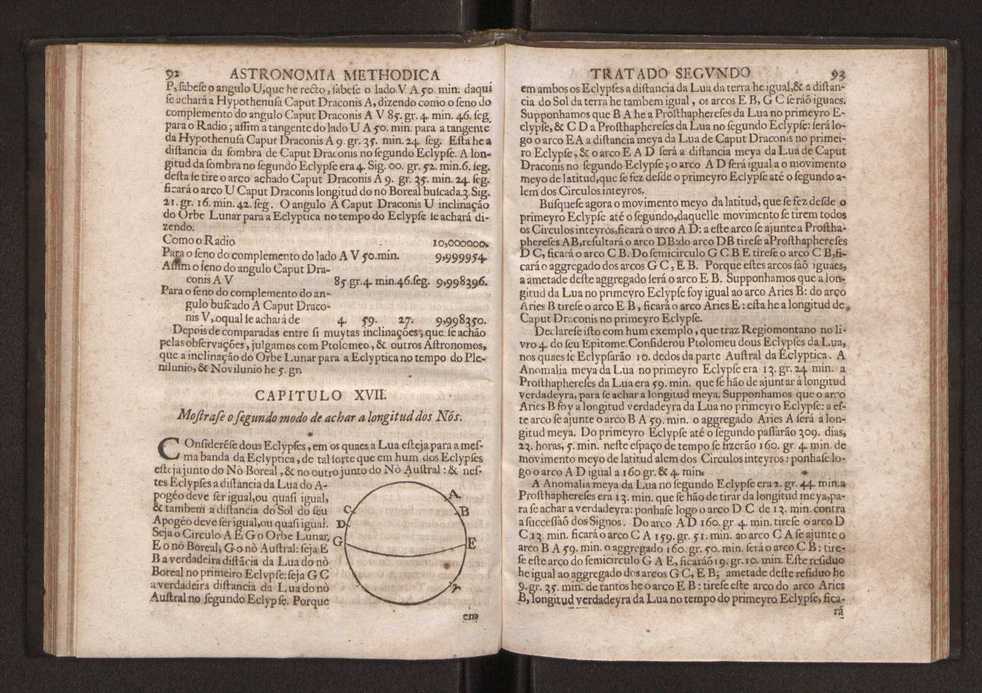 92 ASTRONOMIA METHODICA
P, sabese o angulo U, que he recto, sabese o lado V A 50. min. daqui
se achará a Hypothenusa Caput Draconis A, dizendo como o seno do
complemento do angulo Caput Draconis A V 85. gr. 4. min. 46. seg.
para o Radio; assim a tangente do lado U A 50. min. para a tangente
da Hypothenusa Caput Draconis A 9. gr. 35. min. 24. seg. Esta he a
distancia da sombra de Caput Draconis no segundo Eclypse. A lon-
gitud da sombra no segundo Eclypse era 4. Sig. 00. gr. 52. min. 6. seg.
desta se tire o arco achado Caput Draconis A 9. gr. 35. min. 24. seg.
ficará o arco U Caput Draconis longitud do nò Boreal buscada 3. Sig.
21. gr. 16. min. 42. seg. O angulo A Caput Draconis U inclinação
do Orbe Lunar para a Eclyptica no tempo do Eclypse se achará di-
zendo.
Como o Radio 10,000000.
Para o seno do complemento do lado A V 50. min. 9,999954.
Assim o seno do angulo Caput Dra-
conis A V 85 gr. 4. min. 46. seg. 9,998396.
Para o seno do complemento do an-
gulo buscado A Caput Draco-
nis V, o qual se achará de 4. 59. 27. 9,998350.
Depois de comparadas entre si muytas inclinações, que se achão
pelas observações, julgamos com Ptolomeo, & outros Astronomos,
que a inclinação do Orbe Lunar para a Eclyptica no tempo do Ple-
nilunio, & Novilunio he 5. gr.
CAPITULO XVII.
Mostrase o segundo modo de achar a longitud dos Nós.
COnsiderése dous Eclypses, em os quaes a Lua esteja para a mes-
ma banda da Eclyptica, de tal sorte que em hum dos Eclypses
esteja junto do Nò Boreal, & no outro junto do Nò Austral: & nes-
tes Eclypses a distancia da Lua do A-
pogéo deve ser igual, ou quasi igual,
& tambem a distancia do Sol do seu
Apogéo deve ser igual, ou quasi igual.
Seja o Circulo A E G o Orbe Lunar,
E o nò Boreal, G o nò Austral: seja E
B a verdadeira distãcia da Lua do nò
Boreal no primeiro Eclypse: seja G C
a verdadeira distancia da Lua do nò
Austral no segundo Eclypse. Porque
A
B
C
D
G
E
em
TRATADO SEGVNDO 93
em ambos os Eclypses a distancia da Lua da terra he igual, & a distan-
cia do Sol da terra he tambem igual, os arcos E B, G C serão iguaes.
Supponhamos que B A he a Prosthaphereses da Lua no primeyro E-
clypse, & C D a Prosthaphereses da Lua no segundo Eclypse: será lo-
go o arco E A a distancia meya da Lua de Caput Draconis no primei-
ro Eclypse, & o arco E A D será a distancia meya da Lua de Caput
Draconis no segundo Eclypse; o arco A D será igual a o movimento
meyo de latitud, que se fez desde o primeyro Eclypse até o segundo a-
lem dos Circulos inteyros.
Busquese agora o movimento meyo da latitud, que se fez desde o
primeyro Eclypse até o segundo, daquelle movimento se tirem todos
os Circulos inteyros, ficará o arco A D: a este arco se ajunte a Prostha-
phereses AB, resultará o arco DB: do arco DB tirese a Prosthaphereses
D C, ficará o arco C B. Do semicirculo G C B E tirese o arco C B, fi-
cará o aggregado dos arcos G C, E B. Porque estes arcos são iguaes,
a ametade deste aggregado será o arco E B. Supponhamos que a lon-
gitud da Lua no primeyro Eclypse foy igual ao arco Aries B: do arço
Aries B tirese o arco E B, ficará o arco Aries E: esta he a longitud de
Caput Draconis no primeyro Eclypse.
Declarese isto com hum exemplo, que traz Regiomontano no li-
vro 4. do seu Epitome. Considerou Ptolomeu dous Eclypses da Lua,
nos quaes se Eclypsarão 10. dedos da parte Austral da Eclyptica. A
Anomalia meya da Lua no primeyro Eclypse era 13. gr. 24 min. a
Prosthaphereses da Lua era 59. min. que se hão de ajuntar á longitud
verdadeyra, para se achar a longitud meya. Supponhamos que o arco
Aries B foy a longitud verdadeyra da Lua no primeyro Eclypse: a es-
te arco se ajunte o arco B A 59. min. o aggregado Aries A será a lon-
gitud meya. Do primeyro Eclypse até o segundo passarão 209. dias,
23. horas, 5. min. neste espaço de tempo se fizerão 160. gr. 4. min. de
movimento meyo de latitud alem dos Circulos inteyros: ponhase lo-
go o arco A D igual a 160 gr. & 4. min.
A Anomalia meya da Lua no segundo Eclypse era 2. gr. 44. min. a
Prosthaphereses era 13. min. que se hão de tirar da longitud meya, pa-
ra se achar a verdadeyra: ponhase logo o arco D C de 13. min. contra
a successaõ dos Signos. Do arco A D 160. gr 4. min. tirese o arco D
C 13. min. ficará o arco C A 159. gr. 51. min. ao arco C A se ajunte o
arco B A 59. min. o aggregado 160. gr. 50. min. será o arco C B: tire-
se este arco do semicirculo G A E, ficarão 19. gr. 10. min. Este residuo
he igual ao aggregado dos arcos G C, E B; ametade deste residuo he
9. gr. 35. min. de tantos he o arco E B: tirese este arco do arco Aries
B, longitud verdadeyra da Lua no tempo do primeyro Eclypse, fica-
rá